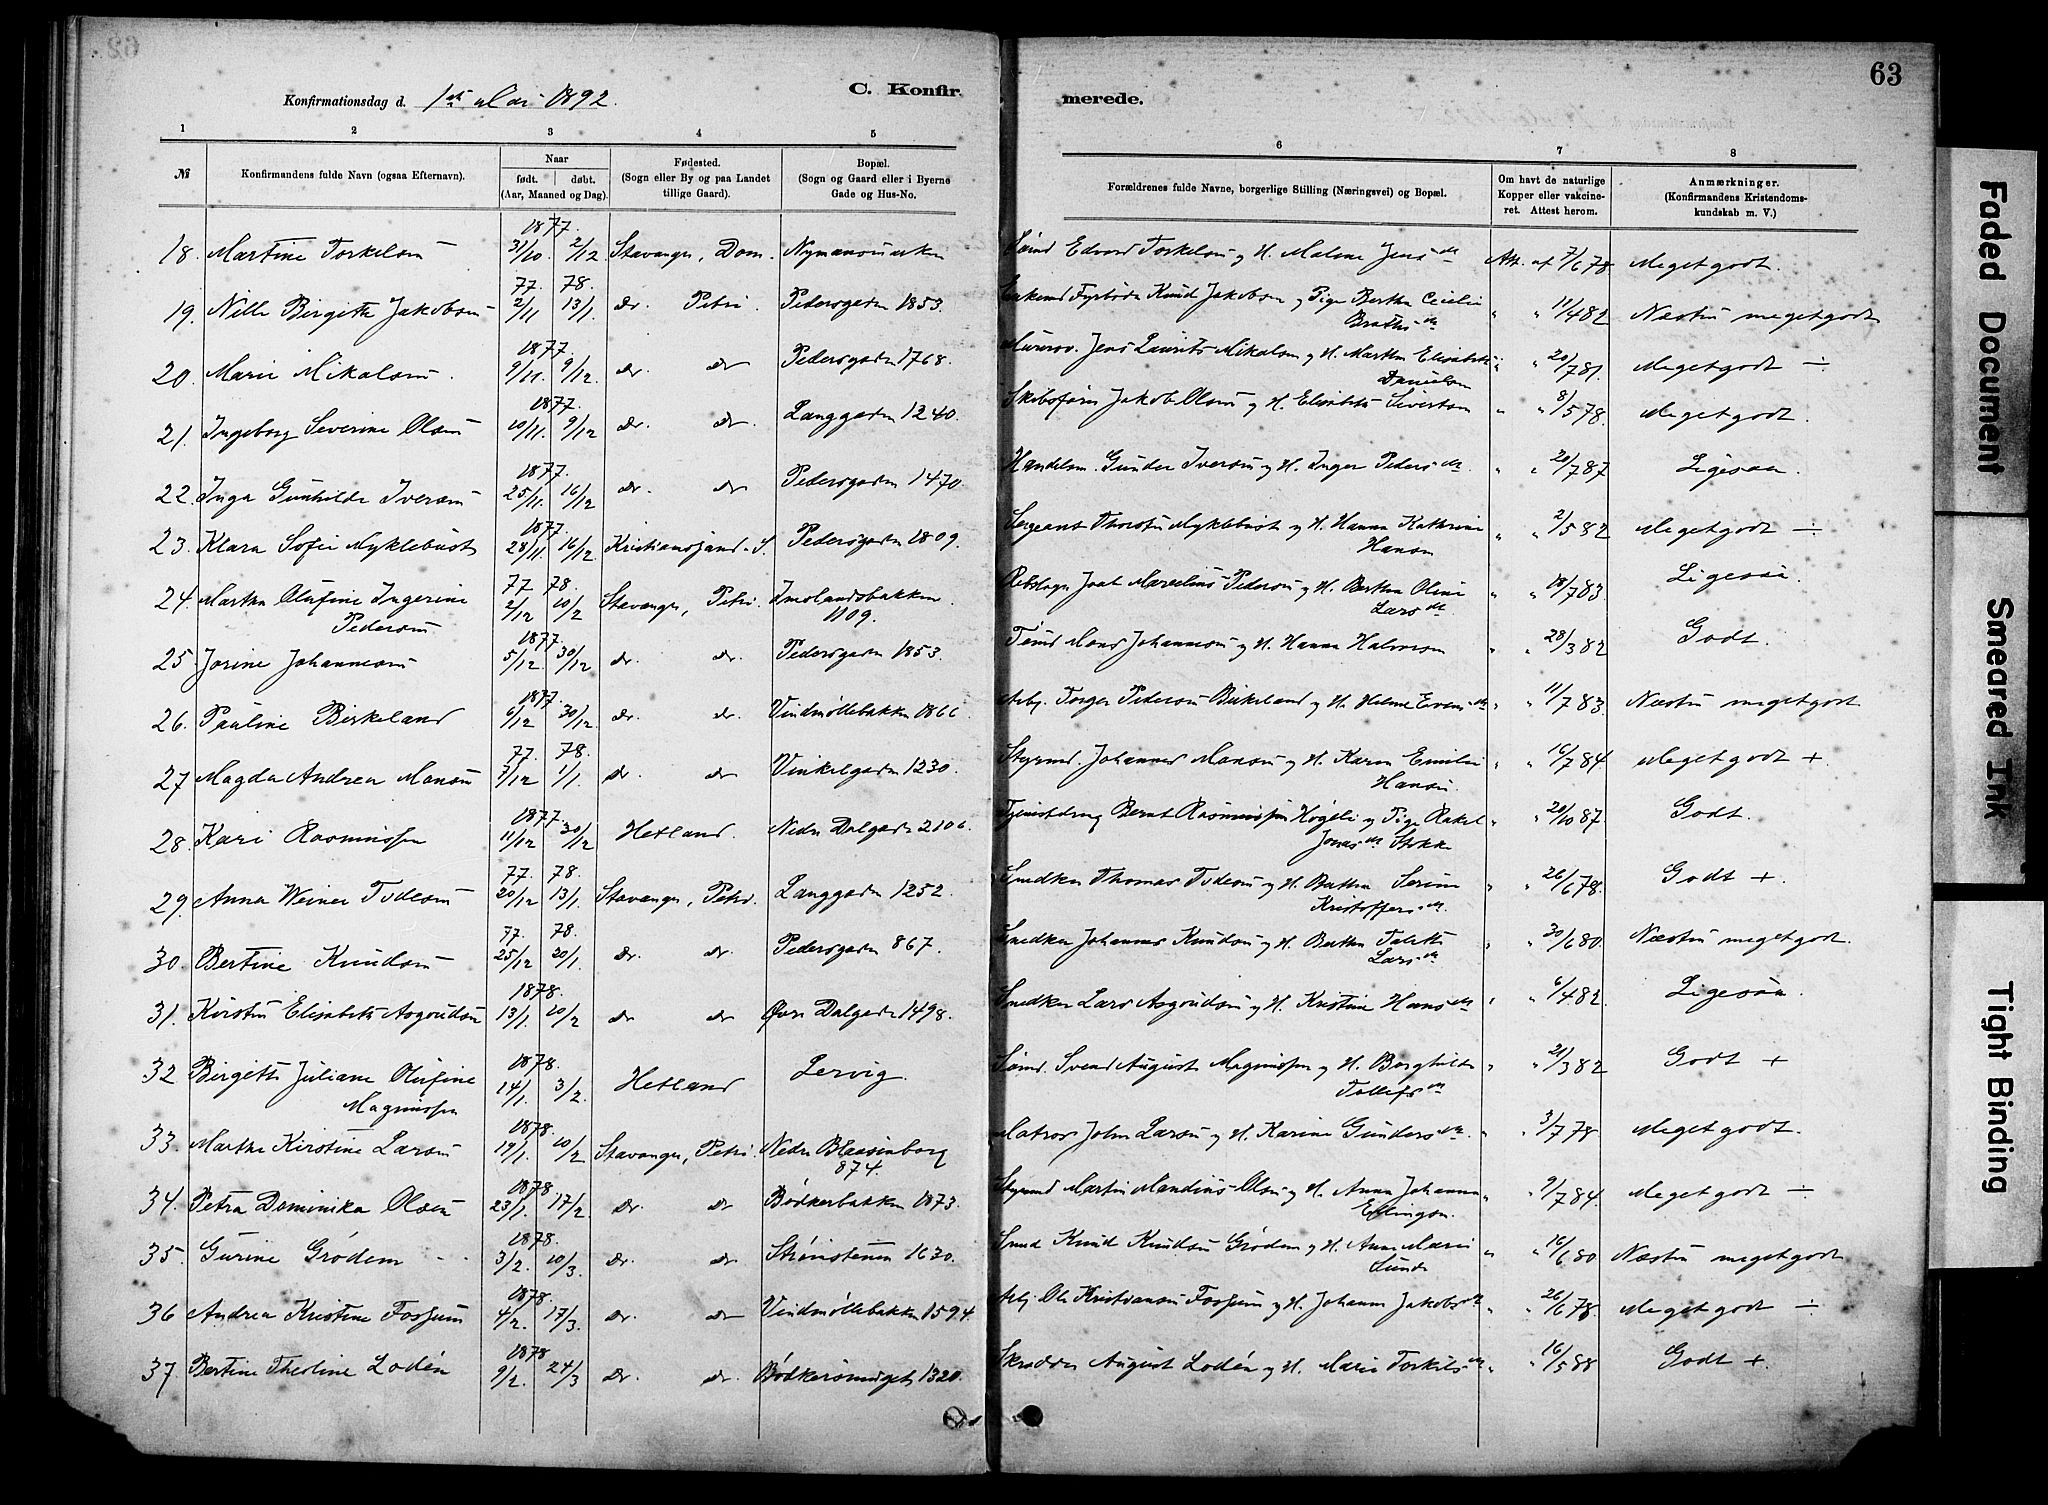 62
63
Konfirmationsdag d. 1ste Mai 1892.
C. Konfir
merede.
1 2 3 4 5 6 7 8
№ Konfirmandens fulde Navn (ogsaa Efternavn). Naar født. døbt. (Aar, Maaned og Dag). Fødested. (Sogn eller By og paa Landet tillige Gaard). Bopæl. (Sogn og Gaard eller i Byerne Gade og Hus-No. Forældrenes fulde Navne, borgerlige Stilling (Næringsvei) og Bopæl. Om havt de naturlige Kopper eller vakcineret. Attest herom. Anmærkninger. (Konfirmandens Kristendomskundskab m. V.)
1877.
18. Martine Torkelsen 31/10. 2/12 Stavanger, Dom. Nymansmarken Sømd Edvard Torkelsen og H. Malene Jensdtr Att. af 7/6 78 Meget godt.
77. 78.
19. Nille Birgitte Jakobsen 2/11 13/1. do. Petri. Pedersgaden 1853. Enkemd Fyrbøder Knud Jakobsen og Pige Bertha Cecilie " " 11/4 82 Næsten meget godt
1877.
20. Marie Mikalsen. 9/11. 9/12. do. do Pedersgaden 1768. Murerov. Jens Laurits Mikalsen og H. Martha Elisabeth Danielsen " " 20/7 81. Meget godt ÷
1877.
21. Ingeborg Severine Olsen 10/11. 9/12 do. do. Langgaden 1240. Skibsfører Jakob Olsen og H. Elisabeth Sivertsen " " 8/5 78. Meget godt.
1877.
22. Inga Gunhilde Iversen 25/11. 16/12 do. do Pedersgaden 1470. Handelsm. Gunder Iversen og H. Inger Pedersdtr. " " 20/7 87 Ligesaa.
1877.
23. Klara Sofie Myklebust 28/11. 16/12. Kristianssand. S. Pedersgaden 1809. Sergeant Thorsten Myklebust og H. Hanna Kathrine Hansen " " 2/5 82 Meget godt ÷
77 78.
24. Martha Olufine Ingerine Pedersen 2/12 10/2 Stavanger, Petri. Imslandsbakken 1109. Rebslager Joat Marselius Pedersen og H. Bertha Oline Larsdtr " " 18/7 83. Ligesaa.
1877.
25. Jorine Johannesen 5/12. 30/12 do. do. Pedersgaden 1853. Tømd Mons Johannesen og H. Hanna Halvorsen " " 28/3 82 Godt.
1877.
26. Pauline Birkeland 6/12 30/12. do. do. Vindmøllebakken 1866 Arbj. Torger Pedersen Birkeland og H. Helene Evensdtr " " 11/7 83. Næsten meget godt
77. 78.
27. Magda Andrea Monsen 7/12 1/1. do. do Vinkelgaden 1230. Styrmd. Johannes Monsen og H. Karen Emilie Hansen. " " 16/7 84. Meget godt +
1877.
28. Kari Rasmussen 11/12 30/12 Hetland. Nedre Dalgade 2106. Tjenestdreng Bernt Rasmussen Høgeli og Pige Rakel Jonasdtr Stokke " " 20/10 87. Godt.
77. 78.
29. Anna Weiner Tødesen 20/12 13/1. Stavanger, Petri. Langgaden 1252. Snedker Thomas Tødesen og H. Bertha Serine Kristoffersdtr. " " 26/6 78. Godt +
77. 78.
30. Bertine Knudsen 25/12 20/1. do. do. Pedersgaden 867. Snedker Johannes Knudsen og H. Bertha Talette Larsdtr " " 30/6 80. Næsten meget godt.
1878.
31. Kirsten Elisabeth Asgoudsen 13/1. 10/2 do do Øvre Dalgade 1498. Snedker Lars Asgoudsen og H. Kristine Hansdtr " " 6/4 82. Ligesaa.
1878.
32 Birgette Juliane Olufine Magnussen 14/1. 3/2. Hetland Lervig. Sømd. Svend August Magnussen og H. Borghilde Tollefsdtr " " 21/3 82 Godt +
1878.
33. Marthe Kirstine Larsen 19/1. 10/2 Stavanger, Petri. Nedre Blaasenborg 874. Matros John Larsen og H. Karine Gundersdtr. " " 3/7 78 Meget godt.
1878
34. Petra Dominika Olsen 23/1. 17/2. do. do Bødkerbakken 1873. Styrmd Martin Mandius Olsen og H. Anna Johanna Ellingsen. " " 9/7 84. Meget godt ÷
1878.
35. Gurine Grødem 3/2. 10/3. do. do Strømstenen 1630. Smed Knud Knudsen Grødem og H. Anne Marie Lunde " " 16/6 80 Næsten meget godt
1878.
36 Andrea Kristine Fossum 4/2. 17/3. do. do Vindmøllebakken 1594. Arbj. Ole Kristiansen Fossum og H. Johanne Jakobsdtr " " 26/6 78. Meget godt ÷
1878
37. Bertine Theoline Lodén 9/2. 24/3 do. do. Bødkersmuget 1320. Skrædder August Lodén og H. Marie Torkilsdtr " " 16/5 88 Godt +
Faded Document
Smeared Ink
Tight Binding